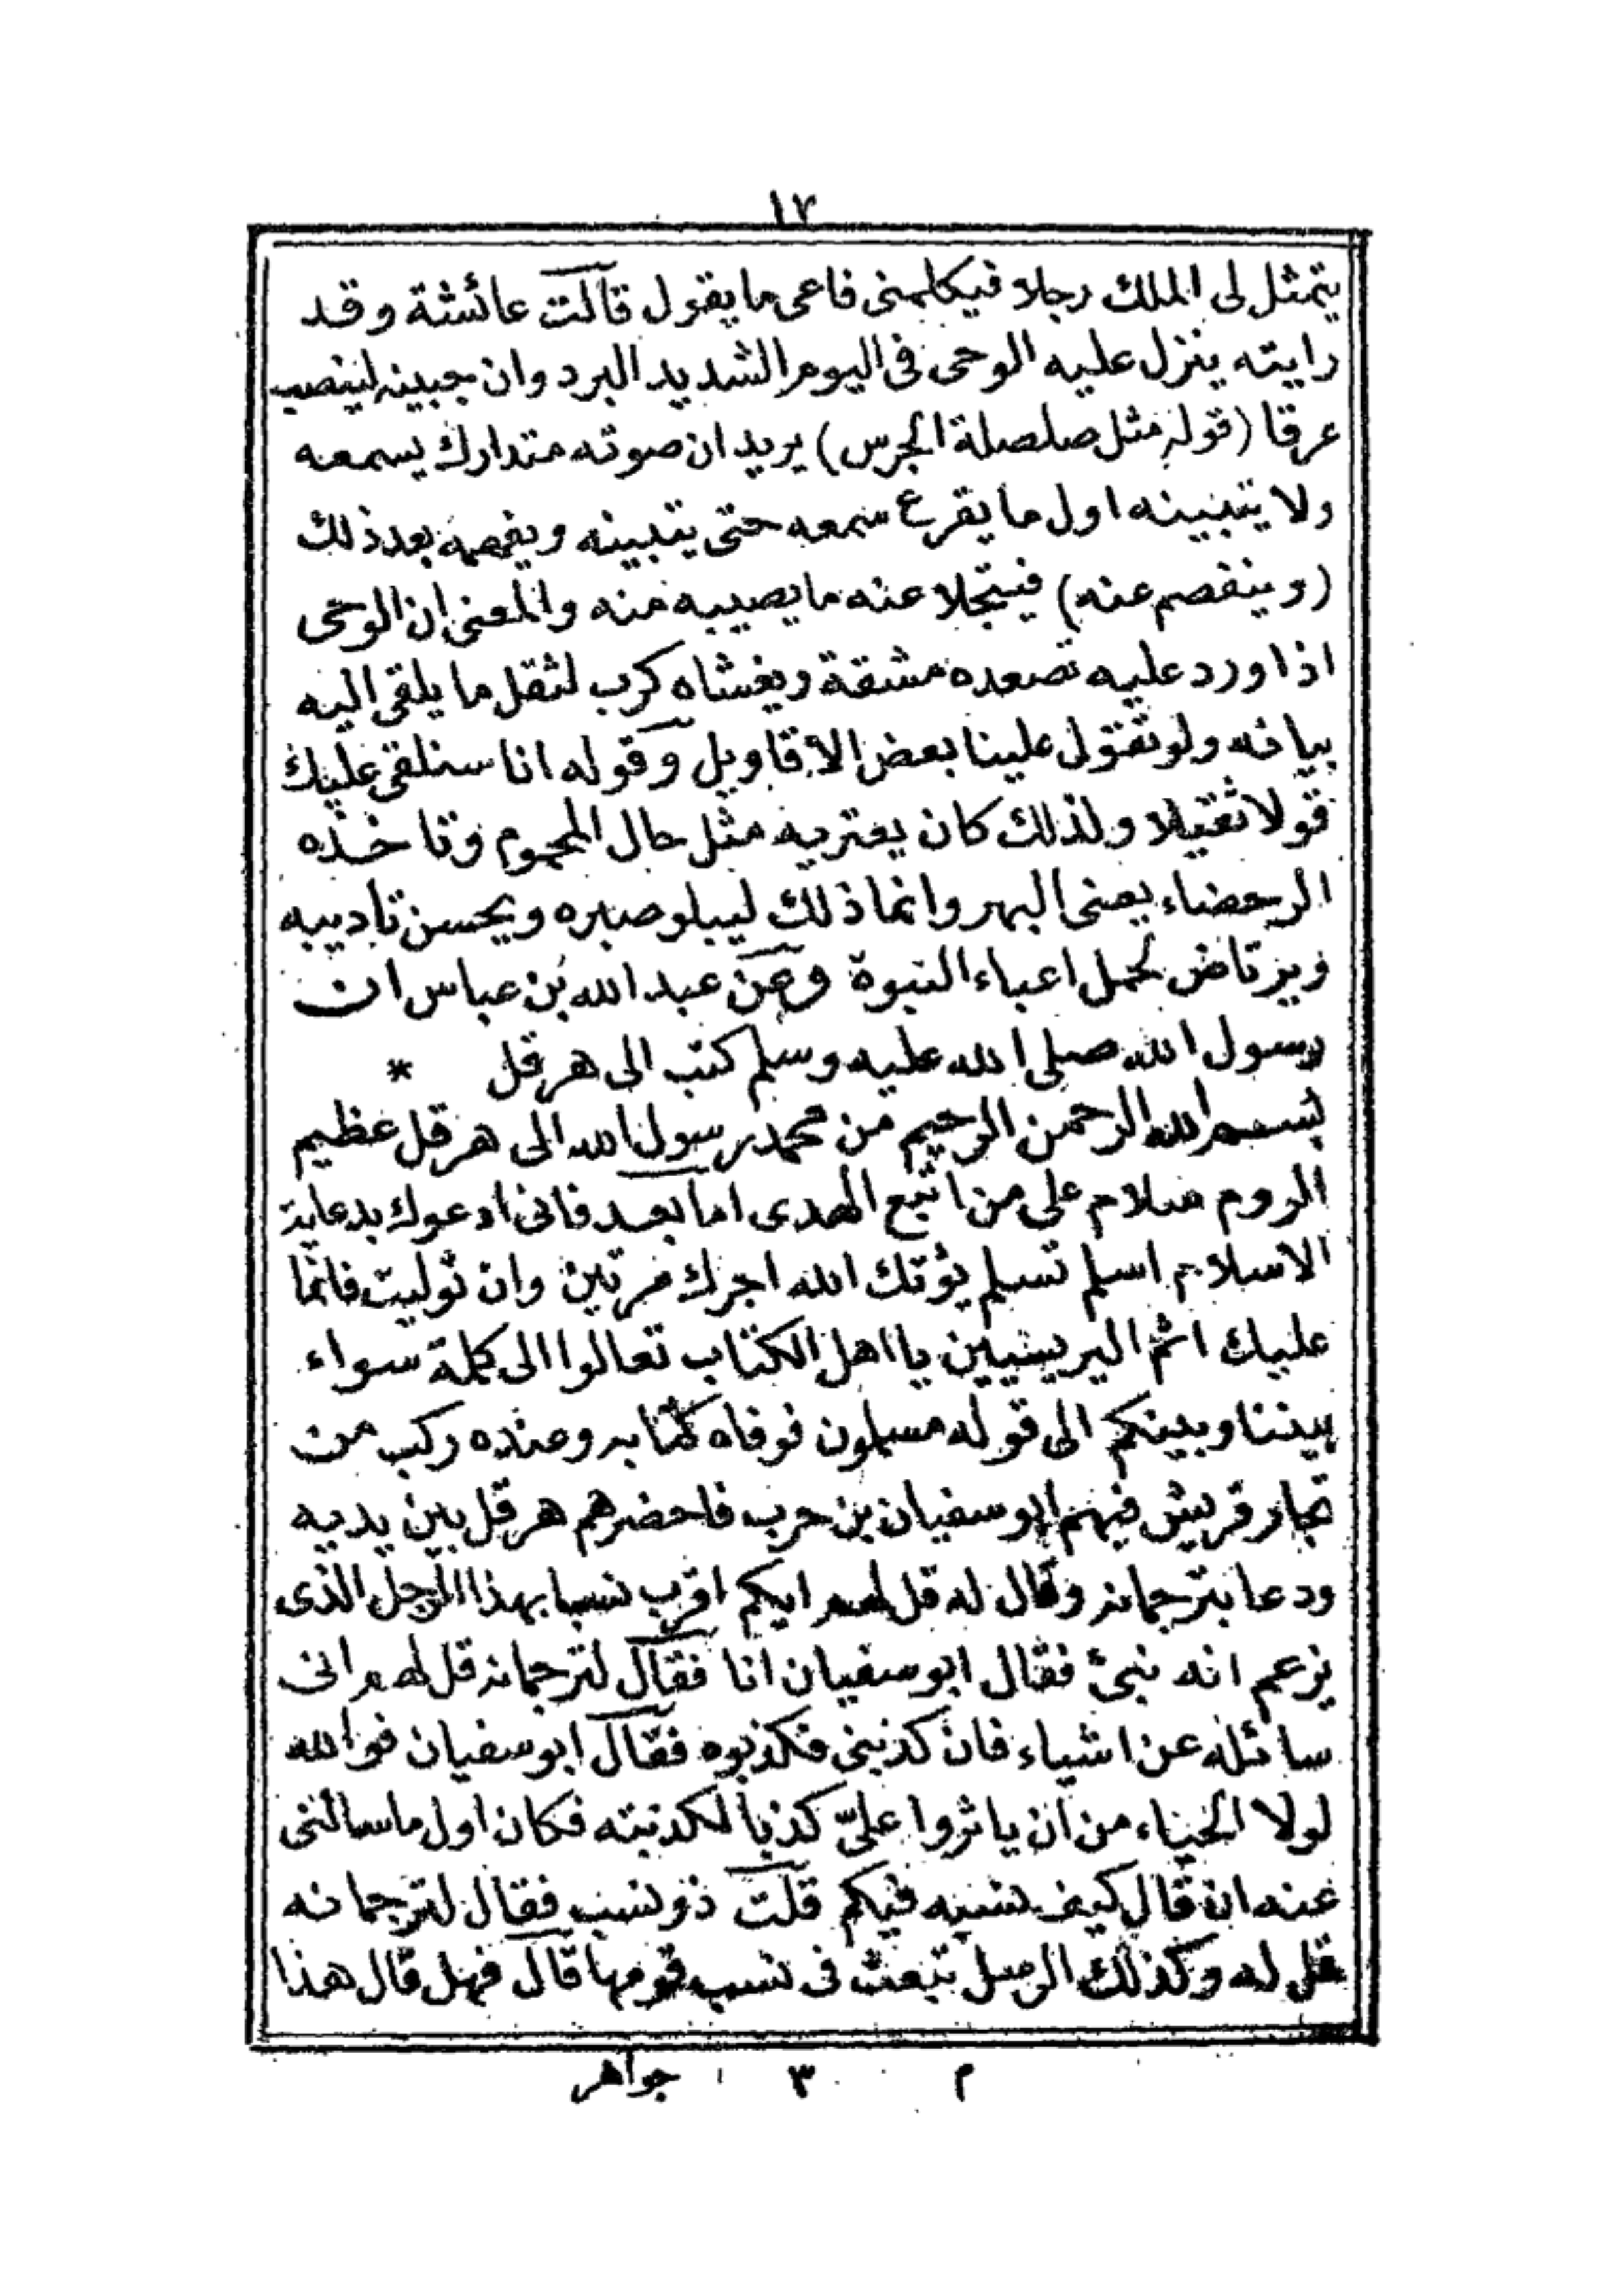 ١٧
يتمثل لى الملك رجلا فيكلمنى فاعى ما يقول قالت عائشة وقد
رايته ينزل عليه الوحى فى اليوم الشديد البرد وان جبينه لينصب
عرقا (قوله مثل صلصلة الجرس) يريد ان صوته متدارك يسمعه
ولا يتبينه اول ما يقرع سمعه حتى يتبينه ويفهمه بعد ذلك
(وينفصم عنه) فينجلا عنه ما يصيبه منه والمعنى ان الوحى
اذا ورد عليه تصعده مشقة ويغشاه كرب لثقل ما يلقى اليه
بيانه ولو تقول علينا بعض الاقاويل وقوله انا سنلقى عليك
قولا ثقيلا ولذلك كان يعتريه مثل حال المحموم وتاخذه
الرحضاء يعنى البهر وانما ذلك ليبلو صبره ويحسن تاديبه
ويرتاض لحمل اعباء النبوة وعن عبد الله بن عباس ان
رسول الله صلى الله عليه وسلم كتب الى هرقل *
بسم الله الرحمن الرحيم من محمد رسول الله الى هرقل عظيم
الروم سلام على من اتبع الهدى اما بعد فانى ادعوك بدعاية
الاسلام اسلم تسلم يؤتك الله اجرك مرتين وان توليت فانما
عليك اثم اليريسيين يا اهل الكتاب تعالوا الى كلمة سواء
بيننا وبينكم الى قوله مسلمون فوفاه كتابه وعنده ركب من
تجار قريش فيهم ابو سفيان بن حرب فاحضرهم هرقل بين يديه
ودعا بترجمانه وقال له قل لهم ايكم اقرب نسبا بهذا الرجل الذى
يزعم انه نبئ فقال ابو سفيان انا فقال لترجمانه قل لهم انى
سائله عن اشياء فان كذبنى فكذبوه فقال ابو سفيان فوالله
لولا الحياء من ان ياثروا علىّ كذبا لكذبته فكان اول ما سالنى
عنه ان قال كيف نسبه فيكم قلت ذو نسب فقال لترجمانه
قل له وكذلك الرسل تبعث فى نسب قومها قال فهل قال هذا
م ٣ جواهر